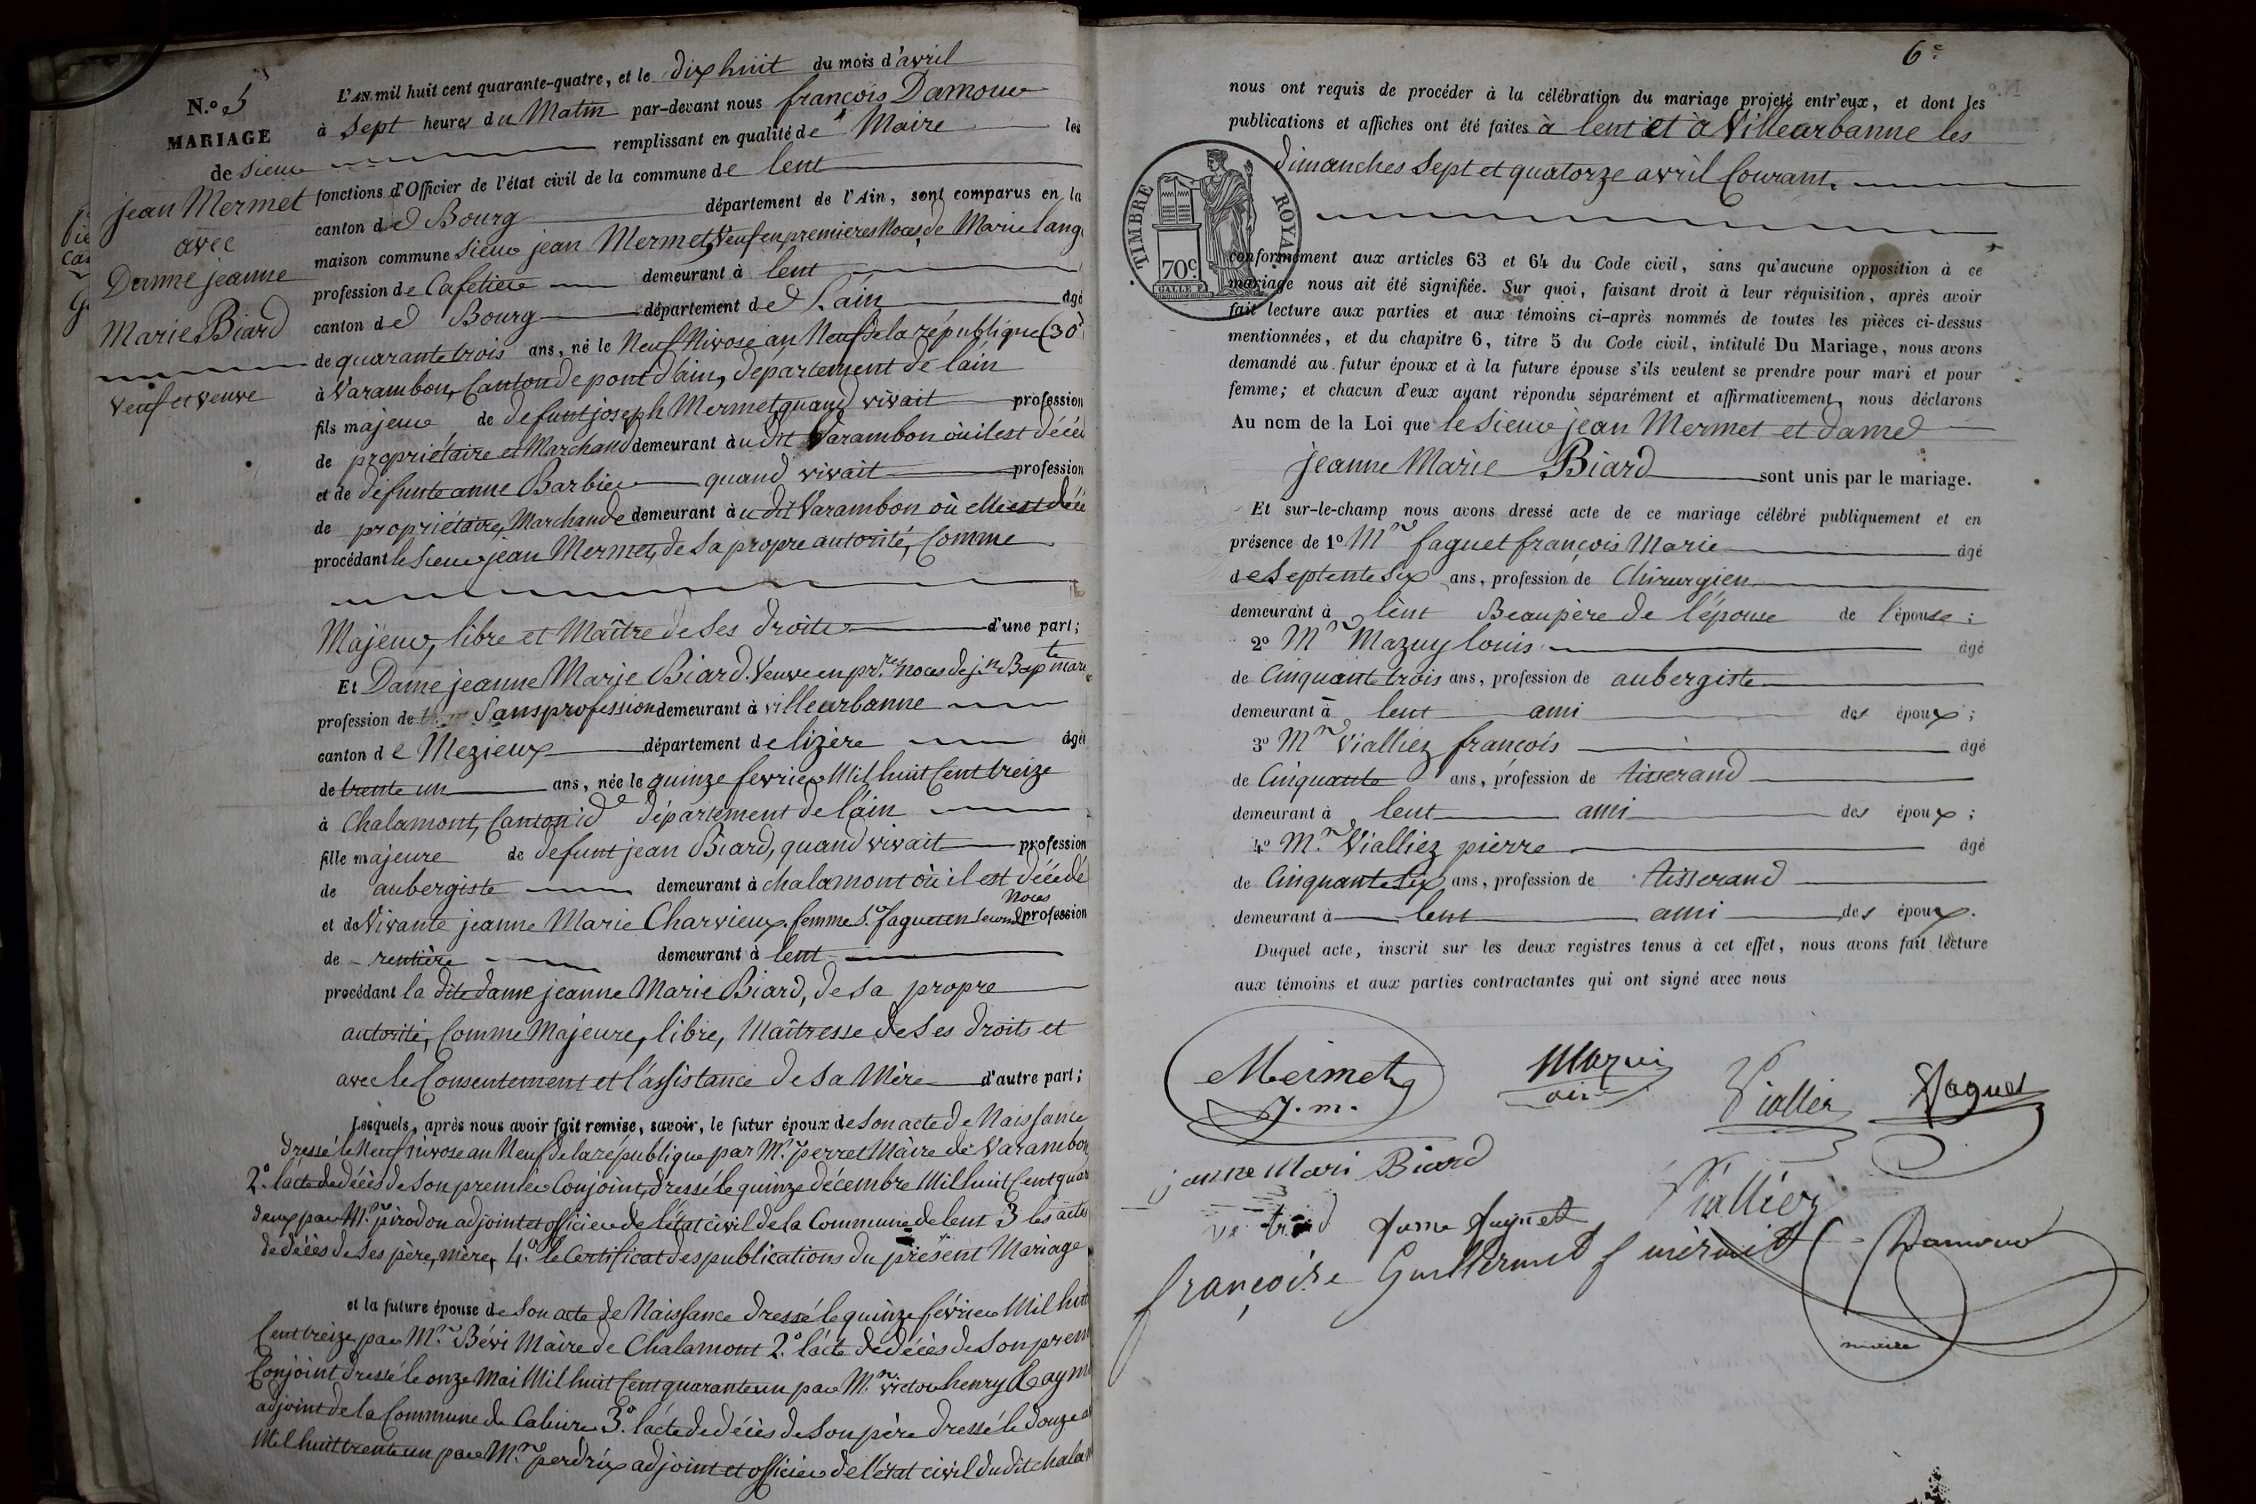 N.º 5
MARIAGE
de Sieur
jean Mermet
avec
Damme jeanne
Marie Biard
veuf et veuve
L'AN mil huit cent quarante-quatre, et le dix huit du mois d'avril
à Sept heures du Matin par-devant nous françois Damour
remplissant en qualité de Maire les
fonctions d'Officier de l'état civil de la commune de lent
canton de Bourg département de l'Ain, sont comparus en la
maison commune Sieur jean Mermet, Veuf en premieres Noces de Marie lang
profession de Cafetier demeurant à lent
canton de Bourg département de L'ain âgé
de quarante trois ans, né le Neuf Nivose an Neuf de la république (30
à Varambon, Canton de pont d'ain, département de l'ain
fils majeur de defunt joseph Mermet quand vivait profession
de propriétaire et Marchand demeurant à u dit Varambon où il est décéd
et de défunte anne Barbier quand vivait profession
de propriétaire, Marchande demeurant à u dit Varambon où elle est décé
procédant le Sieur jean Mermet, de Sa propre autorité, Comme
Majeur, libre et Maître de Ses droits d'une part;
Et Dame jeanne Marie Biard. Veuve en pr.res noces de j.n Bap te mare
profession de Sans profession demeurant à villeurbanne
canton de Mezieux département de lizère âgée
de trente un ans, née le quinze fevrier Mil huit Cent treize
à Chalamont, Canton id département de l'ain
fille majeure de defunt jean Biard, quand vivait profession
de aubergiste demeurant à chalamont où il est décédé
et de Vivante jeanne Marie Charvieux femme S.r faguet en Seconde Noces profession
de rentière demeurant à lent
procédant la dite dame jeanne Marie Biard, de Sa propre
autorité, Comme Majeure, libre, Maîtresse de Ses droits et
avec le Consentement et l'assistance de Sa Mère d'autre part;
Lesquels, après nous avoir fait remise, savoir, le futur époux de Son acte de Naissance
dressé le Neuf nivose an Neuf de la république par M.r perret Maire de Varambon
2.º l'acte de décès de Son premier Conjoint, dressé le quinze décembre Mil huit Cent quar
deux par M.r pirodon adjoint et officier de l'état civil de la Commune de lent 3 les actes
de décès de Ses père, mère, 4.º le Certificat des publications du présent Mariage
et la future épouse de Son acte de Naissance dressé le quinze février Mil huit
Cent treize par M.r Bévi Maire de Chalamont 2.º l'acte de décès de Son prem
Conjoint dressé le onze Mai Mil huit Cent quarante un par M.r victor henry Raym
adjoint de la Commune de Caluire 3.º l'acte de décès de Son père dressé le douze a
Mil huit trente un par M.r perdrix adjoint et officier de l'état civil du dit chalam
6e
nous ont requis de procéder à la célébration du mariage projeté entr'eux, et dont les
publications et affiches ont été faites à lent et à Villeurbanne les
dimanches Sept et quatorze avril Courant.
TIMBRE ROYAL
70c
conformément aux articles 63 et 64 du Code civil, sans qu'aucune opposition à ce
mariage nous ait été signifiée. Sur quoi, faisant droit à leur réquisition, après avoir
fait lecture aux parties et aux témoins ci-après nommés de toutes les pièces ci-dessus
mentionnées, et du chapitre 6, titre 5 du Code civil, intitulé Du Mariage, nous avons
demandé au futur époux et à la future épouse s'ils veulent se prendre pour mari et pour
femme; et chacun d'eux ayant répondu séparément et affirmativement, nous déclarons
Au nom de la Loi que le Sieur jean Mermet et dame
jeanne Marie Biard sont unis par le mariage.
Et sur-le-champ nous avons dressé acte de ce mariage célébré publiquement et en
présence de 1º M.r faguet françois Marie âgé
de Septente Six ans, profession de Chirurgien
demeurant à lent Beaupère de l'épouse de l'épouse;
2º M.r Mazuy louis âgé
de Cinquante trois ans, profession de aubergiste
demeurant à lent ami des époux;
3º M.r Vialliez françois âgé
de Cinquante ans, profession de tisserand
demeurant à lent ami des époux;
4º M.r Vialliez pierre âgé
de Cinquante Six ans, profession de tisserand
demeurant à lent ami des époux.
Duquel acte, inscrit sur les deux registres tenus à cet effet, nous avons fait lecture
aux témoins et aux parties contractantes qui ont signé avec nous
Mermet
J. m.
Viallier
Faguet
janne Mari Biard
Viallier
fame faguet
françoise Guillermet f mermet
Damour
maire